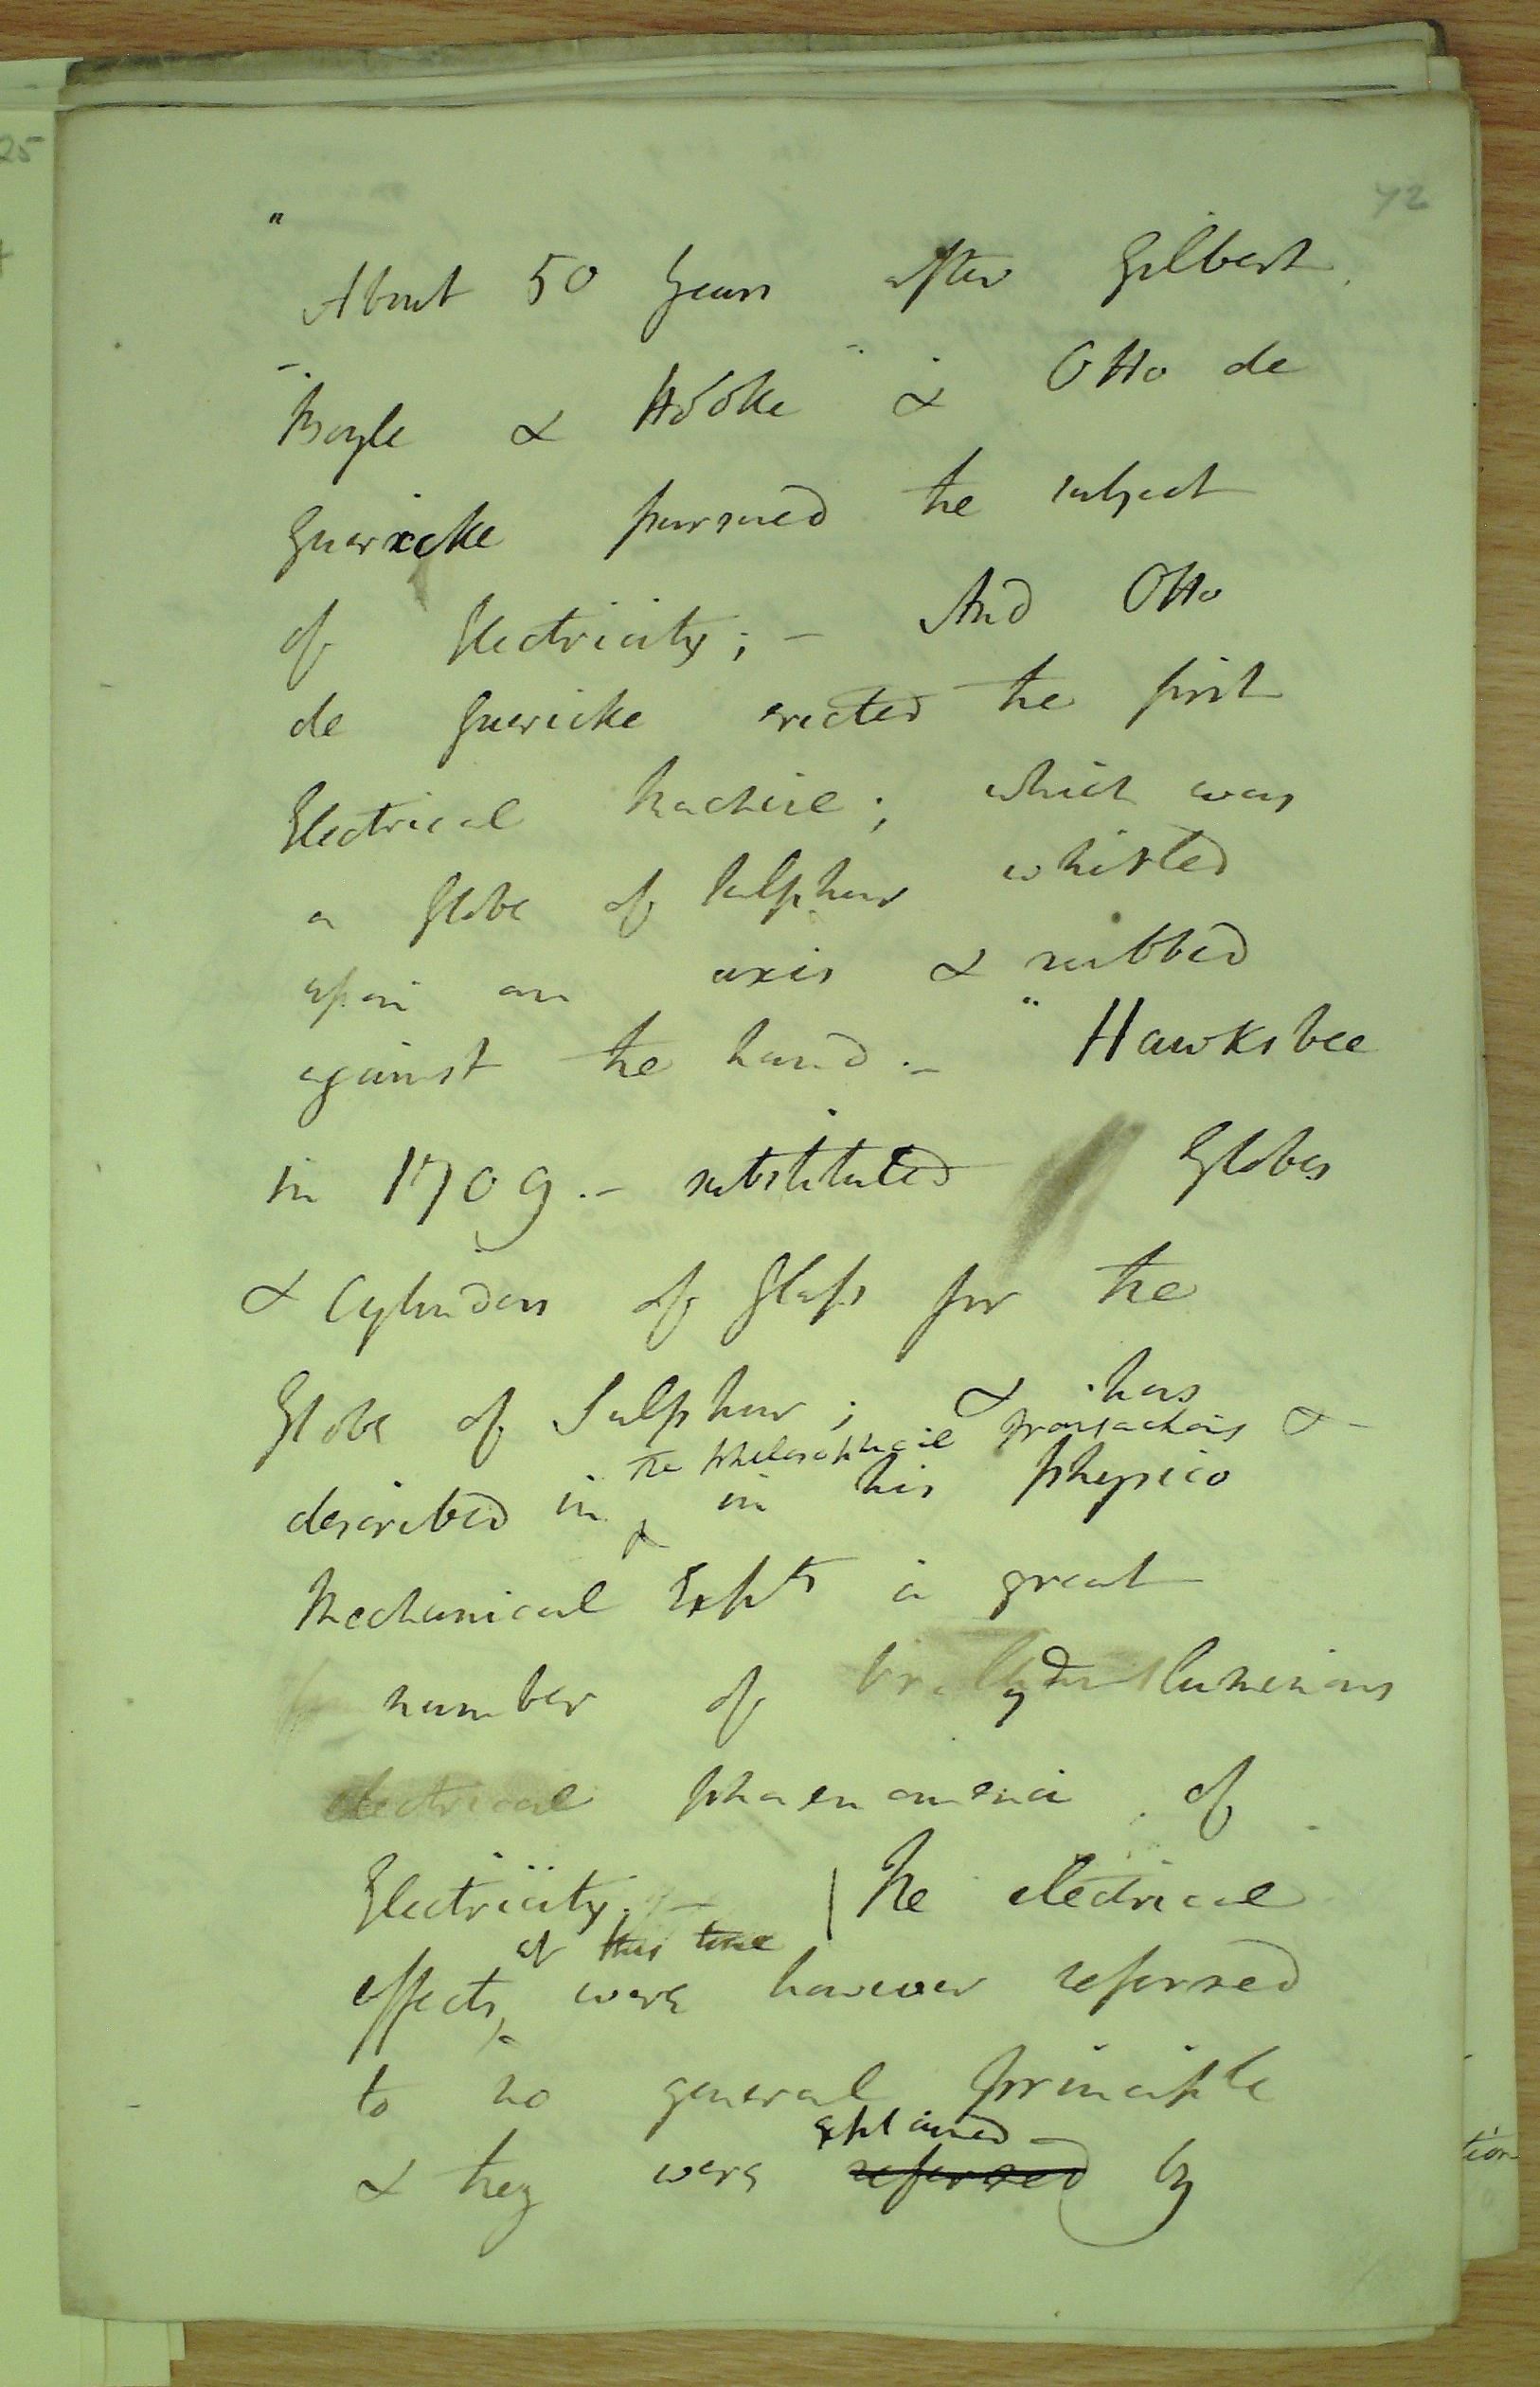 42
"
About 50 Years after Gilbert
Boyle & Hooke & Otto de
Guericke pursued the subject
of Electricity; – And Otto
de Guericke erected the first
Electrical Machine; which was
a Globe of Sulphur whirled
upon an axis & rubbed
against the hand. – " Hawksbee
in 1709. – substituted Globes
& Cylinders of Glass for the
Globe of Sulphur; & has
the philosophical transactions & –
described in in his physico
Mechanical Expts a great
number of luminous
electrical phaenomena of
Electricity. – | The electrical
at this time
effects, were however referred
to no general principle
explained
& they were referred by
25
tion